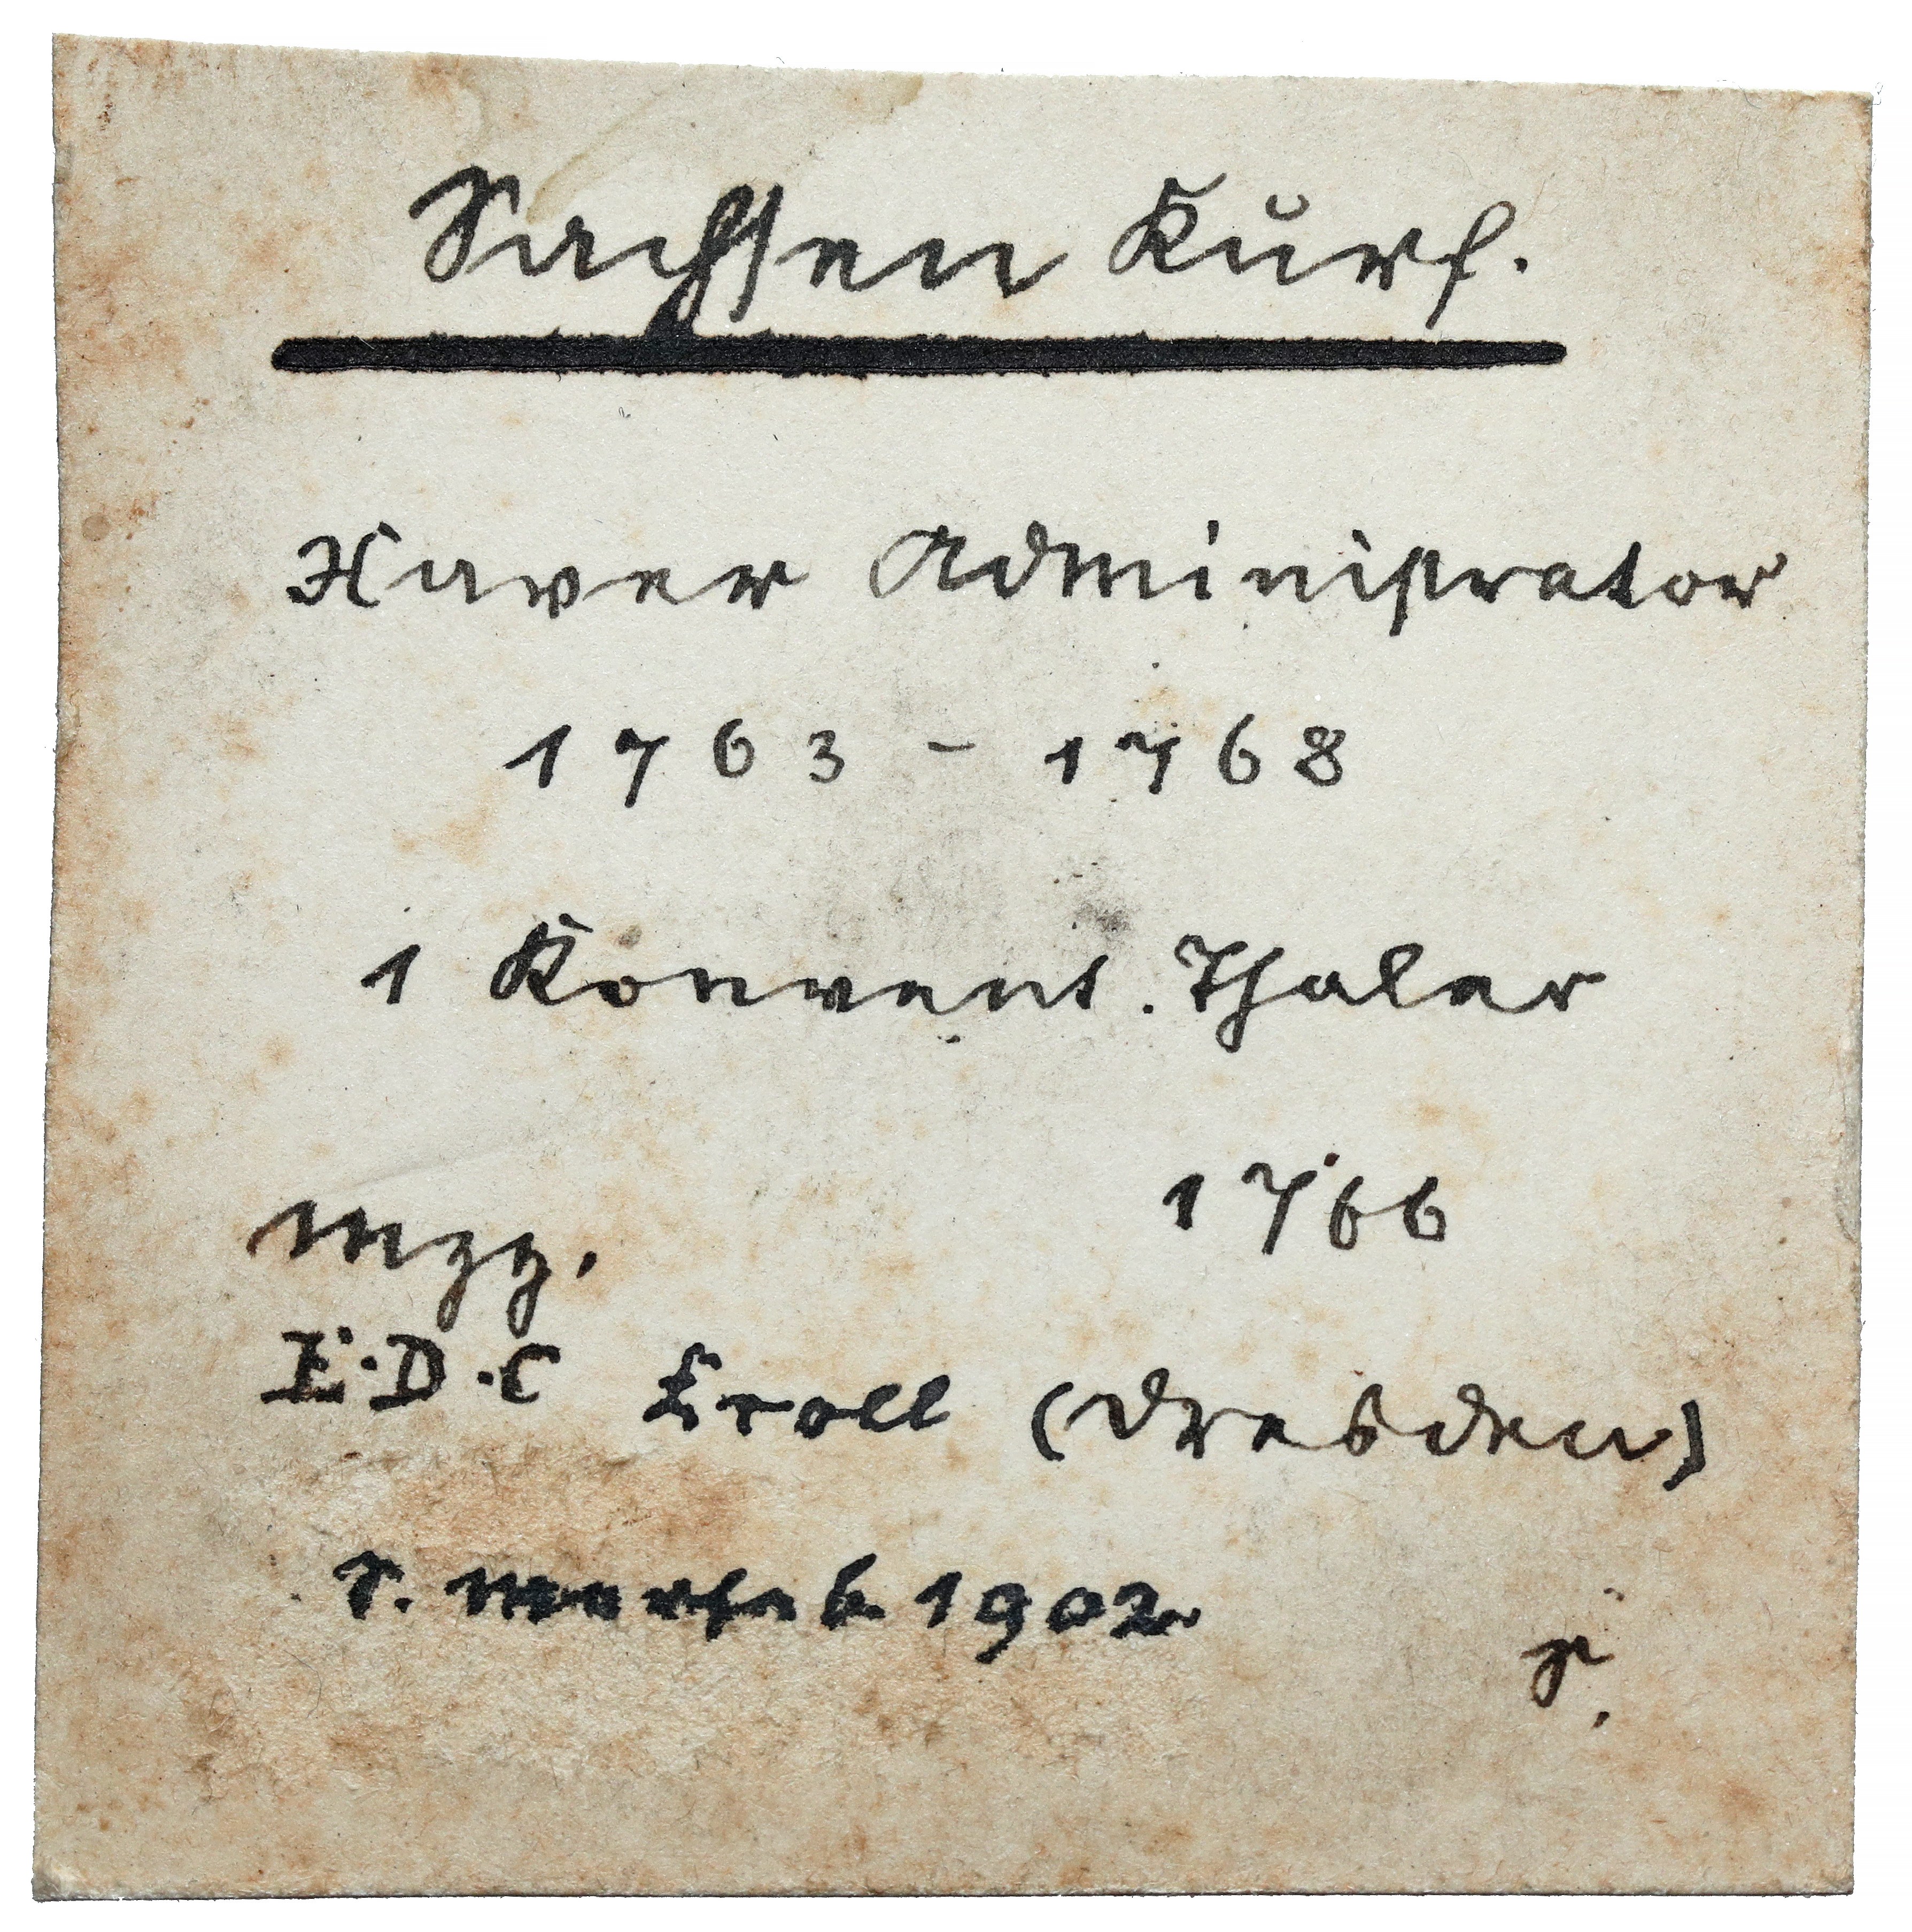 Sachsen Kurf.
Xaver Administrator
1763 - 1768
1 Konvent. Thaler
Mzz. 1766
E.D.C Croll (Dresden)
S. Merseb. 1902